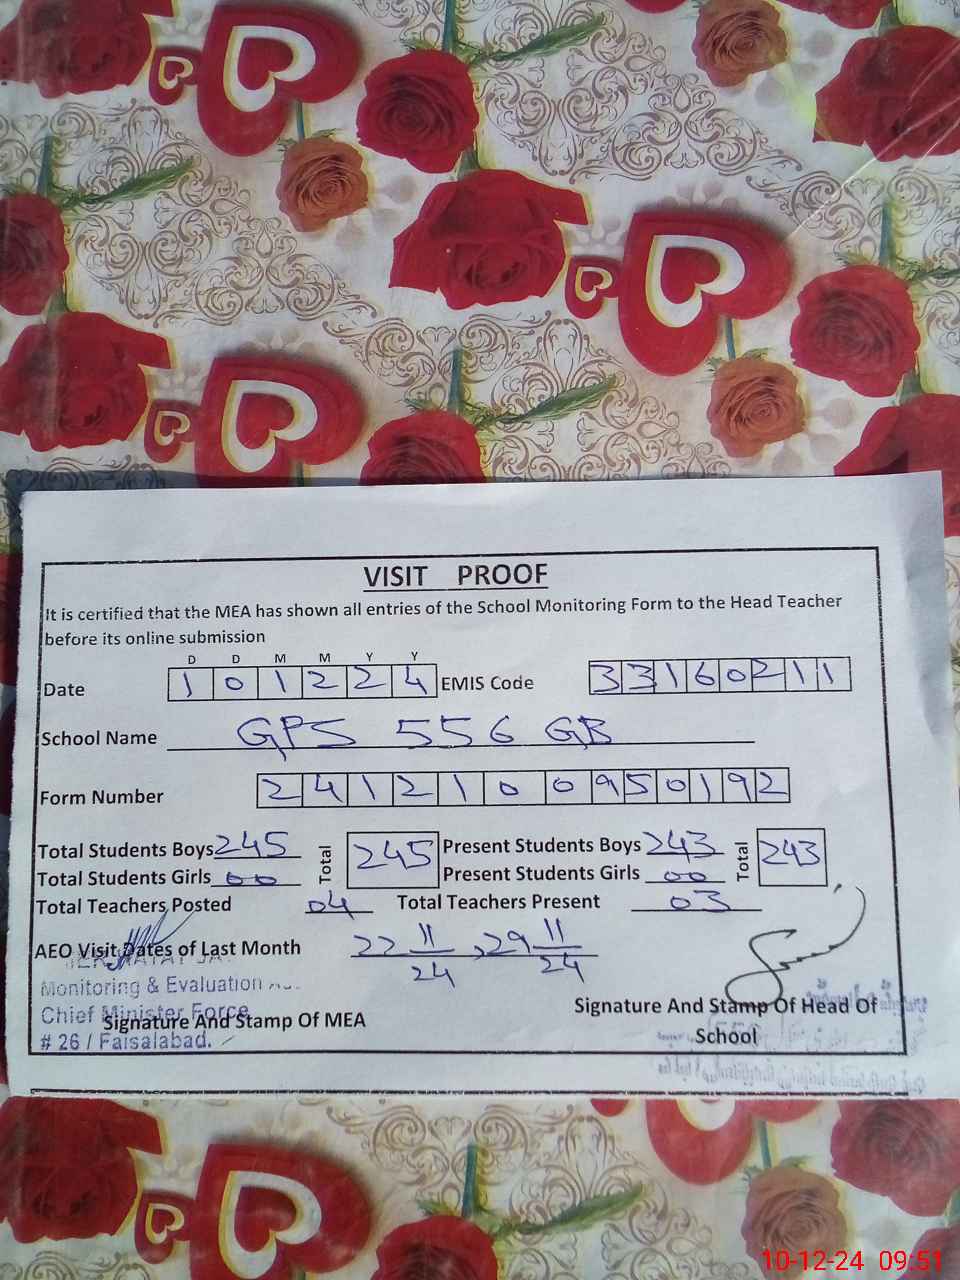 VISIT PROOF
It is certified that the MEA has shown all entries of the School Monitoring Form to the Head Teacher
before its online submission
D D M M Y Y
Date 1 0 1 2 2 4 EMIS Code 3 3 1 6 0 2 1 1
School Name GPS 556 GB
Form Number 2 4 1 2 1 0 0 9 5 0 1 9 2
Total Students Boys 245 Total 245 Present Students Boys 243 Total 243
Total Students Girls 00 Present Students Girls 00
Total Teachers Posted 04 Total Teachers Present 03
AEO Visit Dates of Last Month 22 11/24, 29 11/24
Monitoring & Evaluation
Chief Minister Force
# 26 / Faisalabad.
Signature And Stamp Of MEA
Signature And Stamp Of Head Of
School
10-12-24 09:51